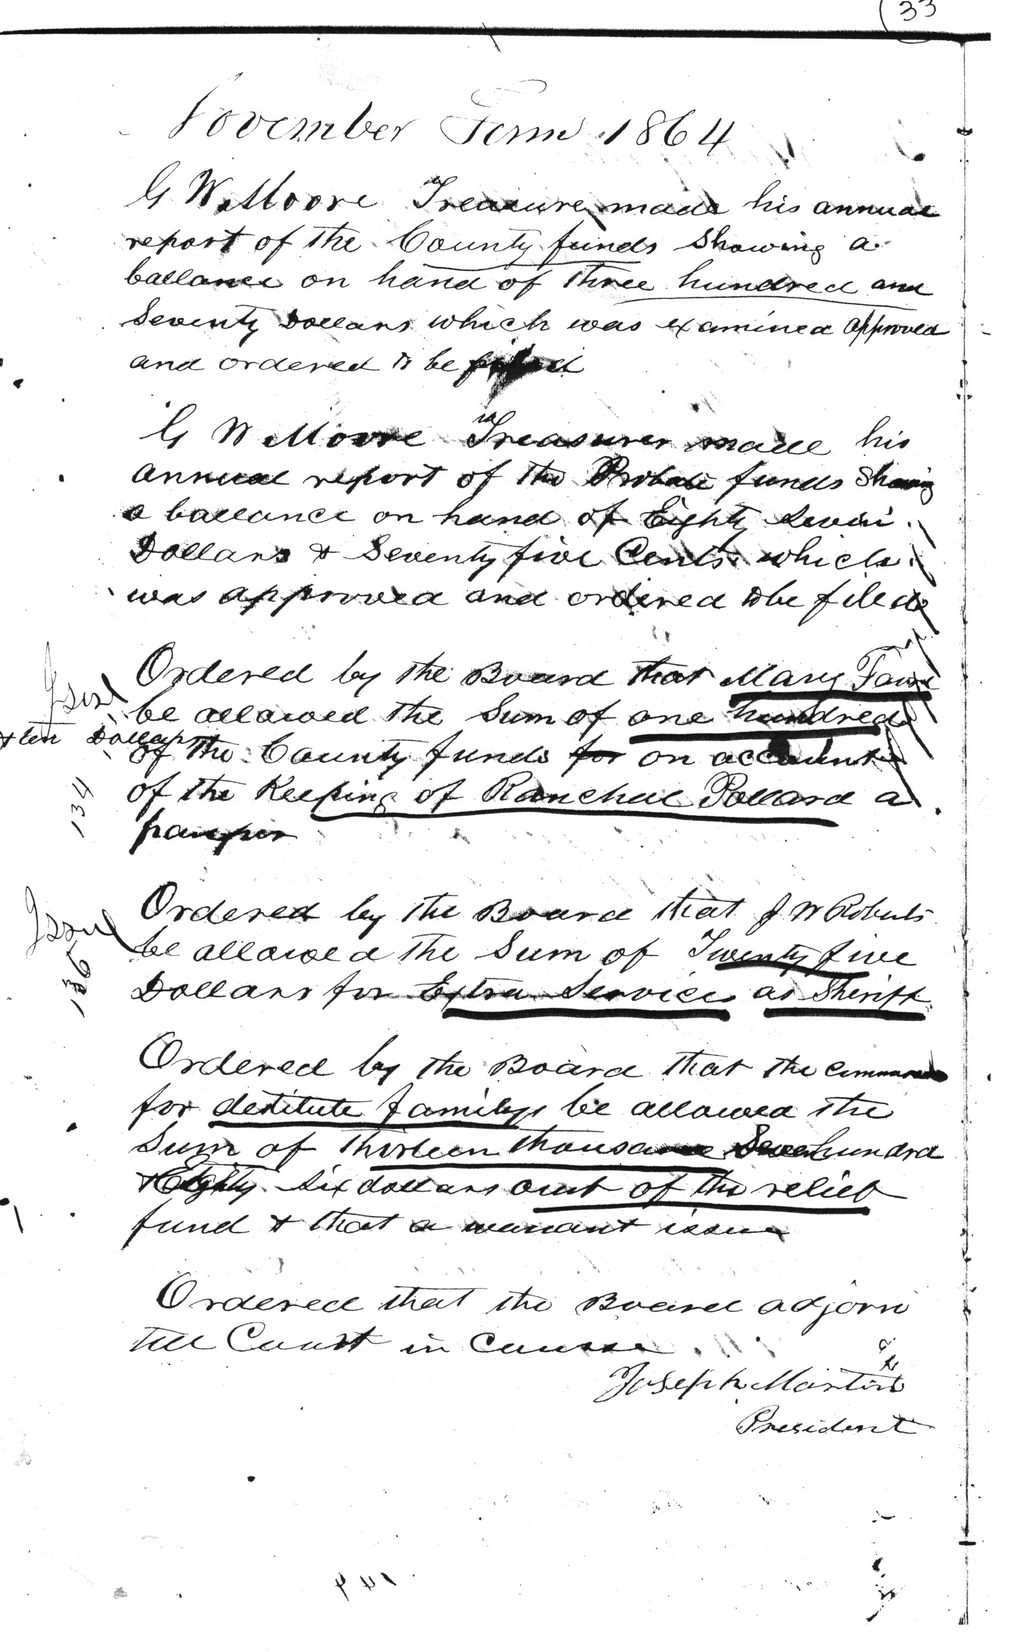 33
November Term 1864
G W Moore Treasure made his annual
report of the County funds Showing a
ballance on hand of three hundred and
Seventy Dollars which was examined approved
and ordered to be filed
G W Moore Treasurer made his
annual report of the Probate funds Showing
a ballance on hand of Eighty Seven
Dollars & Seventy five Cents which
was approved and ordered to be filed
Ordered by the Board that Mary
Issd be allowed the Sum of one hundred
& ten Dollars of the County funds for on account
134 of the Keeping of Ranchel Pollard a
pauper
Ordered by the Board that J W Roberts
Issued be allowed the Sum of Twenty five
136 Dollars for Extra Services as Sheriff
Ordered by the Board that the
for destitute familys be allowed the
Sum of thirteen thousand Seven hundred
& Eighty Six dollars out of the relief
fund & that a warrant issue
Ordered that the Board adjorn
till Court in Course
Joseph Martin
President